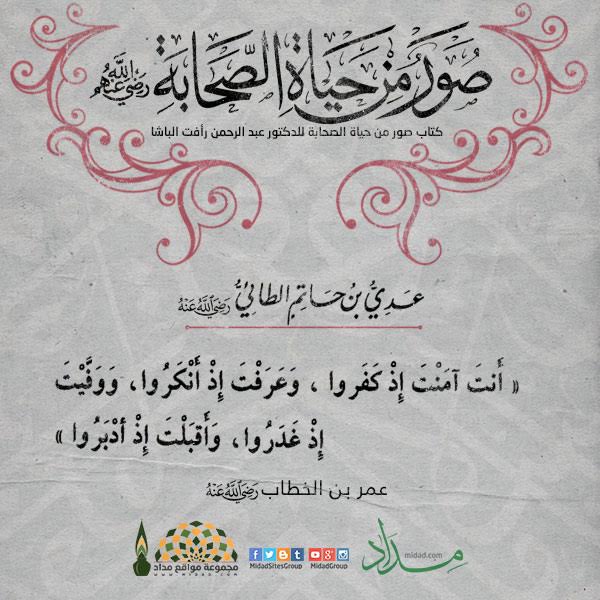 صُوَرٌ مِنْ حَيَاةِ الصَّحَابَةِ رَضِيَ اللَّهُ عَنْهُمْ
كتاب صور من حياة الصحابة للدكتور عبد الرحمن رأفت الباشا
عَدِيُّ بْنُ حَاتِمٍ الطَّائِيُّ رَضِيَ اللَّهُ عَنْهُ
« أَنتَ آمَنْتَ إِذْ كَفَروا ، وَعَرَفْتَ إِذْ أَنْكَرُوا، وَوَفَّيْتَ
إِذْ غَدَرُوا، وَأَقبَلْتَ إِذْ أدْبَرُوا »
عمر بن الخطاب رَضِيَ اللَّهُ عَنْهُ
مجموعة مواقع مداد
WWW.MIDAD.COM
MidadSitesGroup MidadGroup
مداد
midad.com